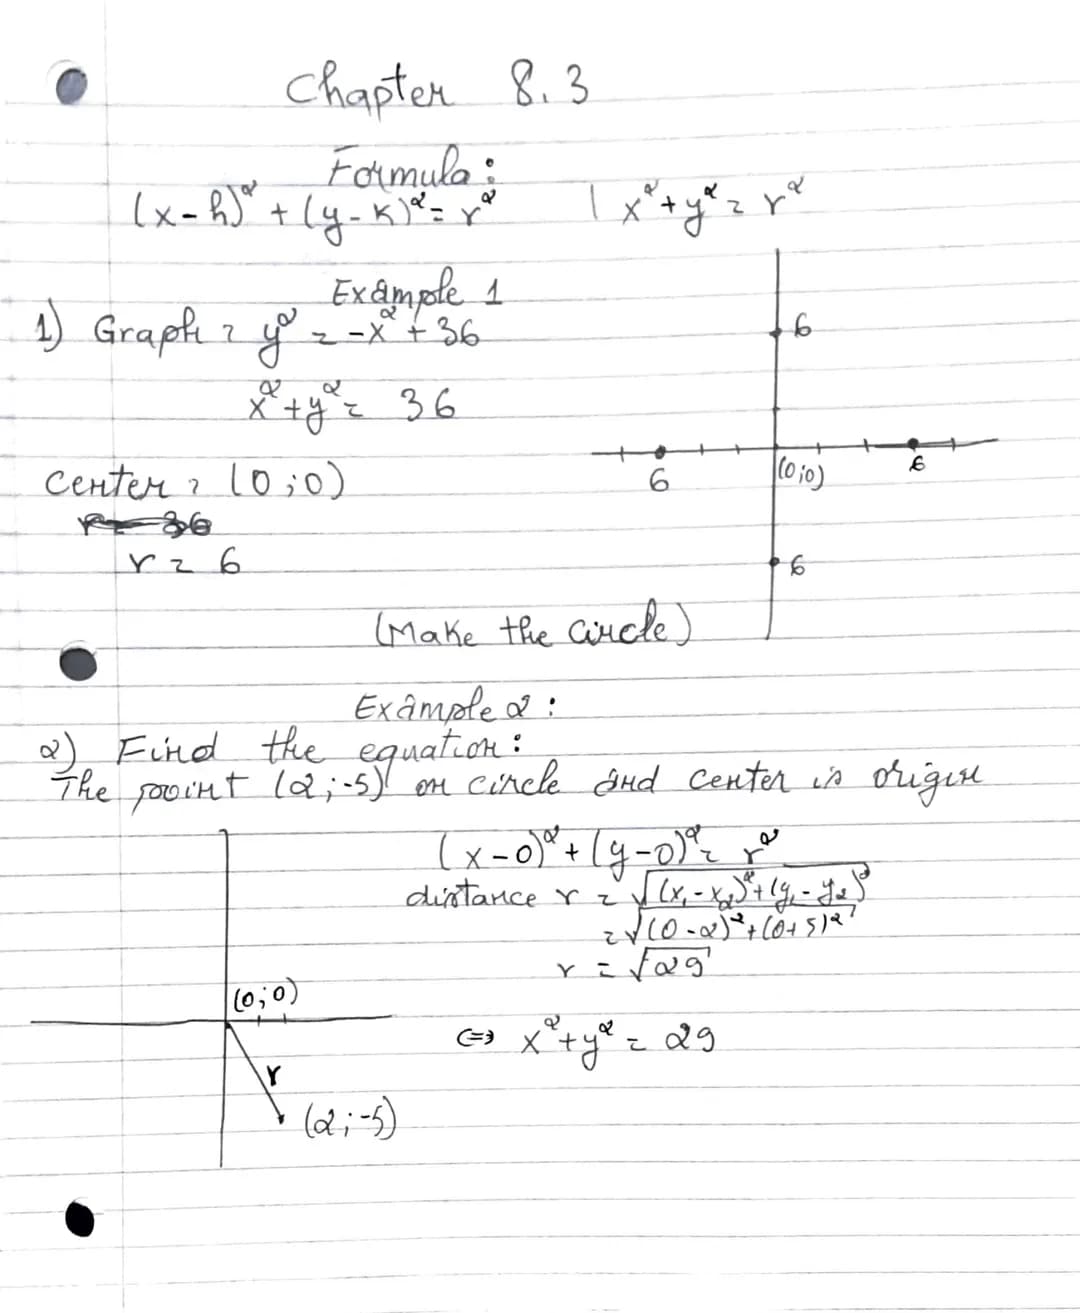 Chapter 8.3
Formula:
(x-h)² + (y-k)² = r² | x² + y² = r²
Example 1
1) Graph: y² = -x² + 36
x² + y² = 36
6
Center: (0;0)
6 (0;0) 6
r = 6
6
(Make the circle)
Example 2:
2) Find the equation:
The point (2;-5) on circle and center is origin
(x-0)² + (y-0)² = r²
distance r = √(x₁-x₂)² + (y₁-y₂)²
= √(0-2)² + (0+5)²
r = √29
(0;0)
⇔ x² + y² = 29
r
(2;-5)